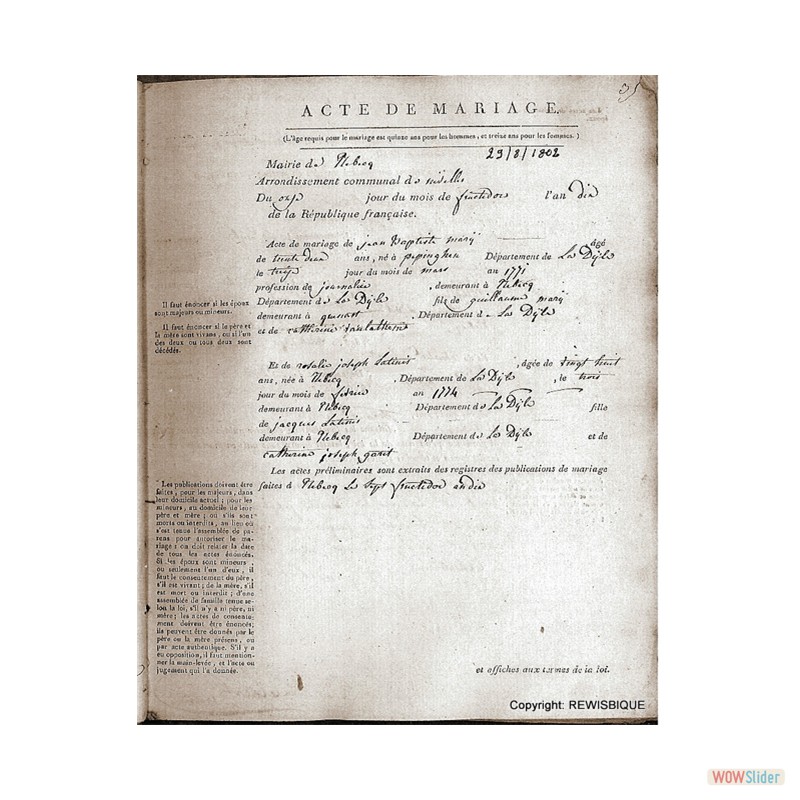 35
ACTE DE MARIAGE.
(L'âge requis pour le mariage est quinze ans pour les hommes, et treize ans pour les femmes.)
29/8/1802
Mairie de Rebecq
Arrondissement communal de nivelles
Du onze jour du mois de fructidor l'an dix
de la République française.
Acte de mariage de jean Baptiste marij âgé
de trente deux ans, né à pepinghen Département de La Dÿle
le treize jour du mois de mars an 1771
profession de journalier, demeurant à Rebecq
Département de La Dÿle fils de guillaume marij
demeurant à quenast, Département de La Dÿle
et de catherine
Il faut énoncer si les époux
sont majeurs ou mineurs.
Il faut énoncer si le père et
la mère sont vivans, ou si l'un
des deux ou tous deux sont
décédés.
Et de rosalie joseph Latinis, âgée de vingt huit
ans, née à Rebecq, Département de La Dÿle, le trois
jour du mois de an 1774
demeurant à Rebecq Département de La Dÿle fille
de jacques Latinis
demeurant à Rebecq Département de La Dÿle et de
catherine joseph
Les actes préliminaires sont extraits des registres des publications de mariage
faites à Rebecq Le Sept fructidor an dix
* Les publications doivent être
faites, pour les majeurs, dans
leur domicile actuel; pour les
mineurs, au domicile de leur
père et mère; ou s'ils sont
morts ou interdits, au lieu où
s'est tenue l'assemblée de pa-
rens pour autoriser le ma-
riage: on doit relater la date
de tous les actes énoncés.
Si les époux sont mineurs,
ou seulement l'un d'eux, il
faut le consentement du père,
s'il est vivant; de la mère, s'il
est mort ou interdit; d'une
assemblée de famille tenue se-
lon la loi, s'il n'y a ni père, ni
mère; les actes de consente-
ment doivent être énoncés;
ils peuvent être donnés par le
père ou la mère présens, ou
par acte authentique. S'il y a
eu opposition, il faut mention-
ner la main-levée, et l'acte ou
jugement qui l'a donnée.
et affiches aux termes de la loi.
Copyright: REWISBIQUE
WOWSlider